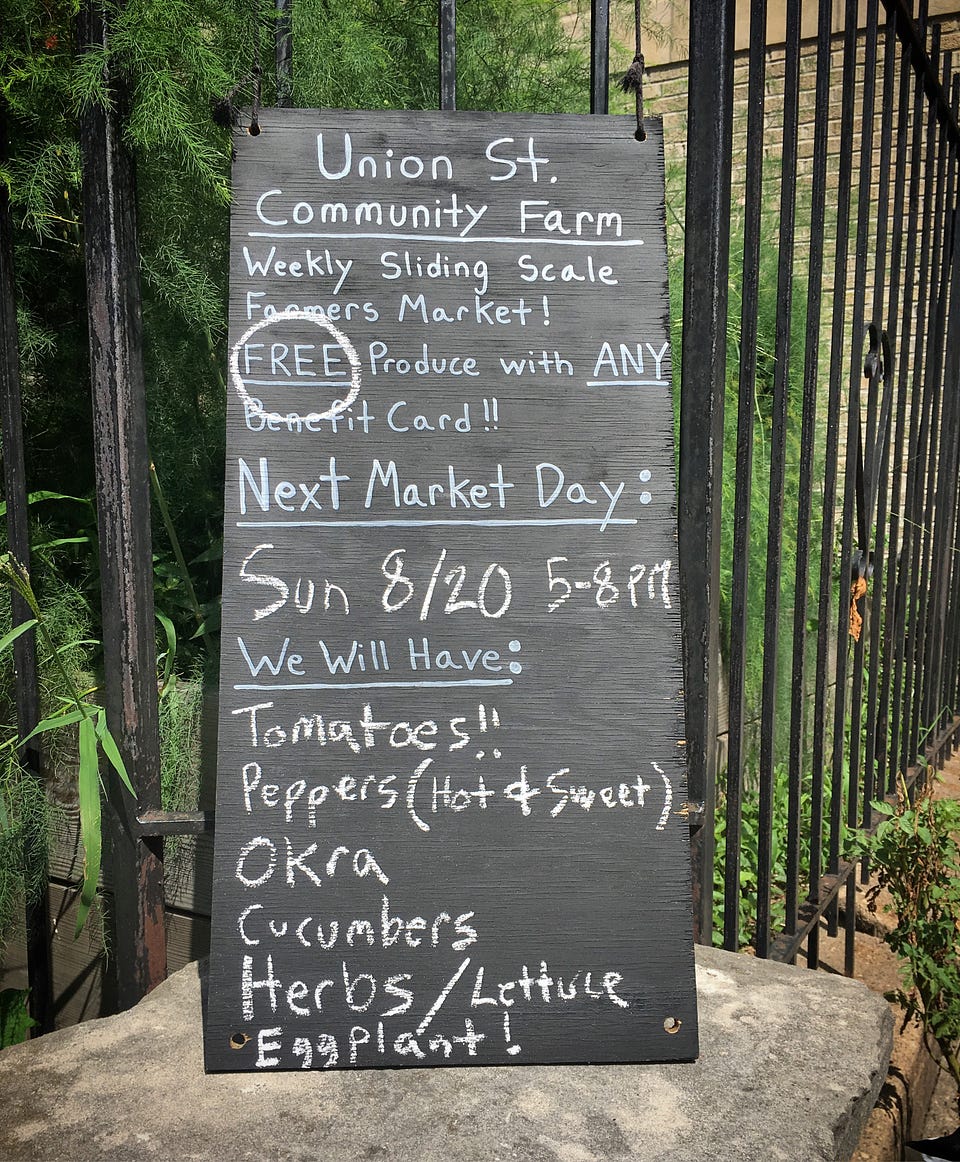 Union St.
Community Farm
Weekly Sliding Scale
Farmers Market!
FREE Produce with ANY
Benefit Card!!
Next Market Day:
Sun 8/20 5-8PM
We Will Have:
Tomatoes!!
Peppers (Hot & Sweet)
Okra
Cucumbers
Herbs/Lettuce
Eggplant!